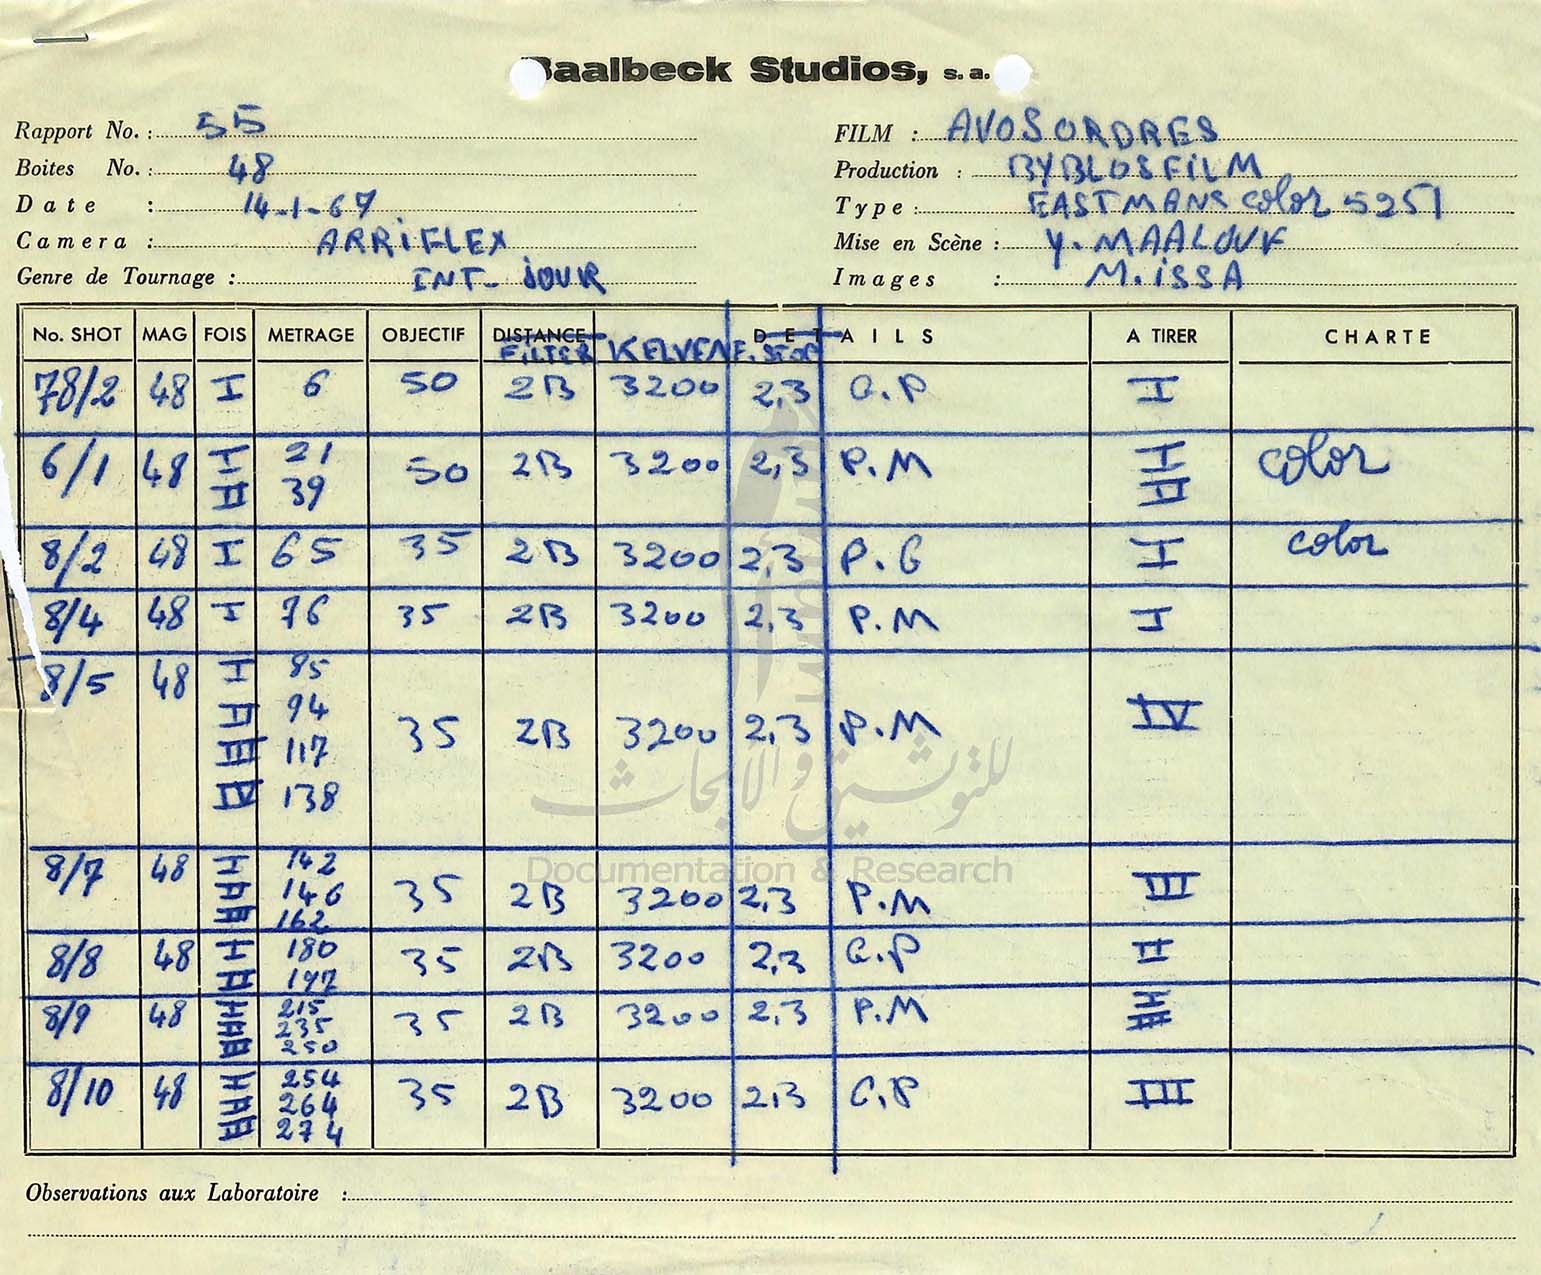 Baalbeck Studios, s.a.
Rapport No. : 55
FILM : AVOS ORDRES
Boites No. : 48
Production : BYBLOS FILM
Date : 14-1-67
Type : EASTMANS color 5251
Camera : ARRIFLEX
Mise en Scène : Y. MAALOUF
Genre de Tournage : INT- JOUR
Images : M. ISSA
No. SHOT MAG FOIS METRAGE OBJECTIF DISTANCE DETAILS A TIRER CHARTE
FILTER KELVEN F. STOP
78/2 48 I 6 50 2B 3200 2,3 G.P I
6/1 48 I 21 50 2B 3200 2,3 P.M I color
II 39 II
8/2 48 I 65 35 2B 3200 2,3 P.G I color
8/4 48 I 76 35 2B 3200 2,3 P.M I
8/5 48 I 85
II 94 35 2B 3200 2,3 P.M IV
III 117
IV 138
8/7 48 I 142
II 146 35 2B 3200 2,3 P.M III
III 162
8/8 48 I 180 35 2B 3200 2,3 G.P II
II 197
8/9 48 I 215 35 2B 3200 2,3 P.M I
II 235 II
III 250 III
8/10 48 I 254 35 2B 3200 2,3 G.P III
II 264
III 274
للتوثيق والأبحاث
Documentation & Research
Observations aux Laboratoire :